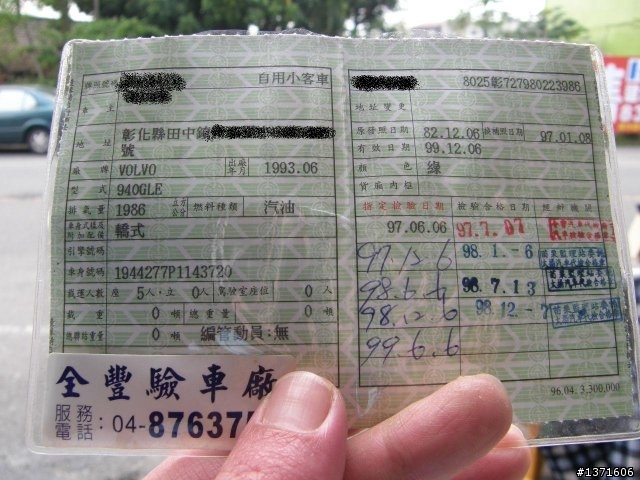 牌照號碼 自用小客車
車主
地址 彰化縣田中鎮
號
廠牌 VOLVO 出廠年月 1993.06
型式 940GLE
排氣量 1986 立方公分 燃料種類 汽油
車身式樣及附加配備 轎式
引擎號碼
車身號碼 1944277P1143720
載運人數 座 5人.立 0人 駕駛室座位 0 人
載重 0 噸 總重量 0 噸
總聯結重量 0 噸 編管動員:無
全豐驗車廠
服務電話:04-87637
8025彰727980223986
地址變更
原發照日期 82.12.06 換補照日期 97.01.08
有效日期 99.12.06
顏色 綠
貨廂內框
指定檢驗日期 檢驗合格日期 經辦機構
97.06.06 97.7.07
97.12.6 98.1.-6
98.6.6 98.7.13
98.12.6 98.12.-7
99.6.6
96.04.3,300,000
#1371606